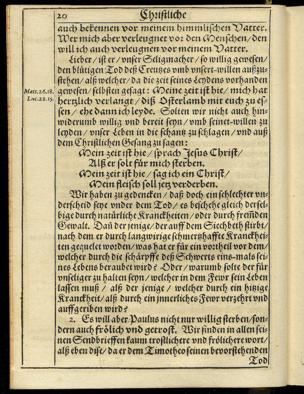 20 Christliche
auch bekennen vor meinem himmlischen Vatter.
Wer mich aber verleugnet vor den Menschen / den
will ich auch verleugnen vor meinem Vatter.
Lieber / ist er / unser Seligmacher / so willig gewesen /
den blütigen Tod deß Creutzes vmb vnsert-willen außzu-
stehen / alß welcher / da die zeit seines Leydens vorhanden
Matt. 26.18. gewesen / selbsten gesagt: Meine zeit ist hie / mich hat
Luc. 22.15. hertzlich verlangt / diß Osterlamb mit euch zu es-
sen / ehe dann ich leyde. Solten wir nicht auch hin-
widerumb willig vnd bereit seyn / vmb seinet-willen zu
leyden / vnser Leben in die schantz zu schlagen / vnd auß
dem Christlichen Gesang zu sagen:
Mein zeit ist hie / sprach Jesus Christ /
Alß er solt für mich sterben.
Mein zeit ist hie / sag ich ein Christ /
Mein fleisch soll jetz verderben.
Wir haben zu gedencken / daß doch ein schlechter vn-
derscheid seye vnder dem Tod / es beschehe gleich dersel-
bige durch natürliche Kranckheiten / oder durch frembden
Gewalt. Dañ der jenige / der auff dem Siechbeth stirbt /
nach dem er durch langwirige schmertzhaffte Kranckhei-
ten gequelet worden / was hat er für ein vortheil vor dem /
welcher durch die schärpffe deß Schwerts eins-mals sei-
nes Lebens beraubet wird? Oder / warumb solte der für
vnseliger zu halten seyn / welcher in dem Fewr sein Leben
lassen muß / alß der jenige / welcher durch ein hitzige
Kranckheit / alß durch ein jnnerliches Fewr verzehrt vnd
auffgerieben wird?
2. Es will aber Paulus nicht nur willig sterben / son-
dern auch frölich vnd getrost. Wir finden in allen sei-
nen Sendbrieffen kaum trostlichere vnd frölichere wort /
alß eben dise / da er dem Timotheo seinen bevorstehenden
Tod